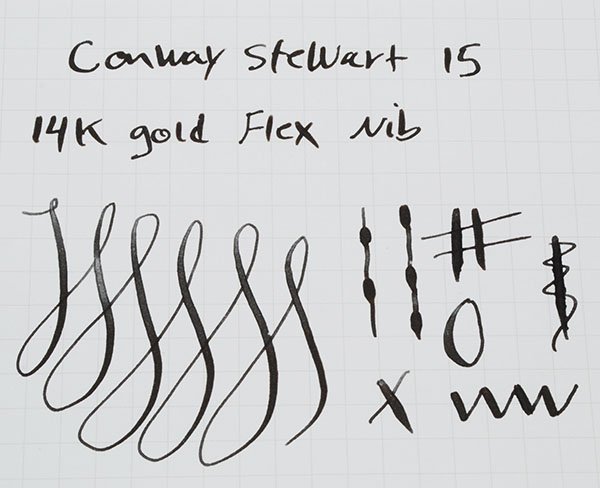 Conway Stewart 15
14K gold Flex Nib